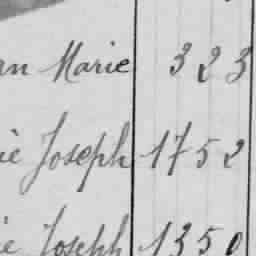 an Marie 323
ie Joseph 1752
ie Joseph 1350